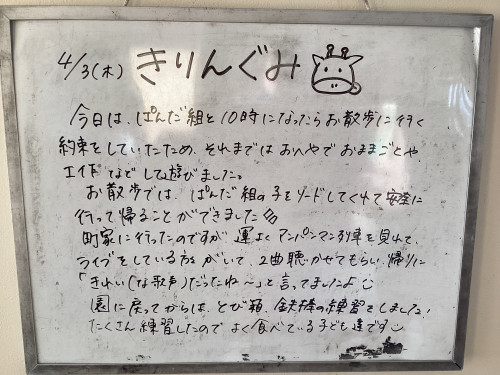 4/3(木) きりんぐみ
今日は、ぱんだ組と10時になったらお散歩に行く
約束をしていたため、それまではおへやでおままごとや
工作などして遊びました。
お散歩では、ぱんだ組の子をリードしてくれて安全に
行って帰ることができました
町家に行ったのですが運よくアンパンマン列車を見れて、
ライブをしている方がいて、2曲聴かせてもらい、帰りに
「きれいな歌声だったね〜」と言ってましたよ
園に戻ってからは、とび箱、鉄棒の練習をしました!
たくさん練習したのでよく食べている子ども達です